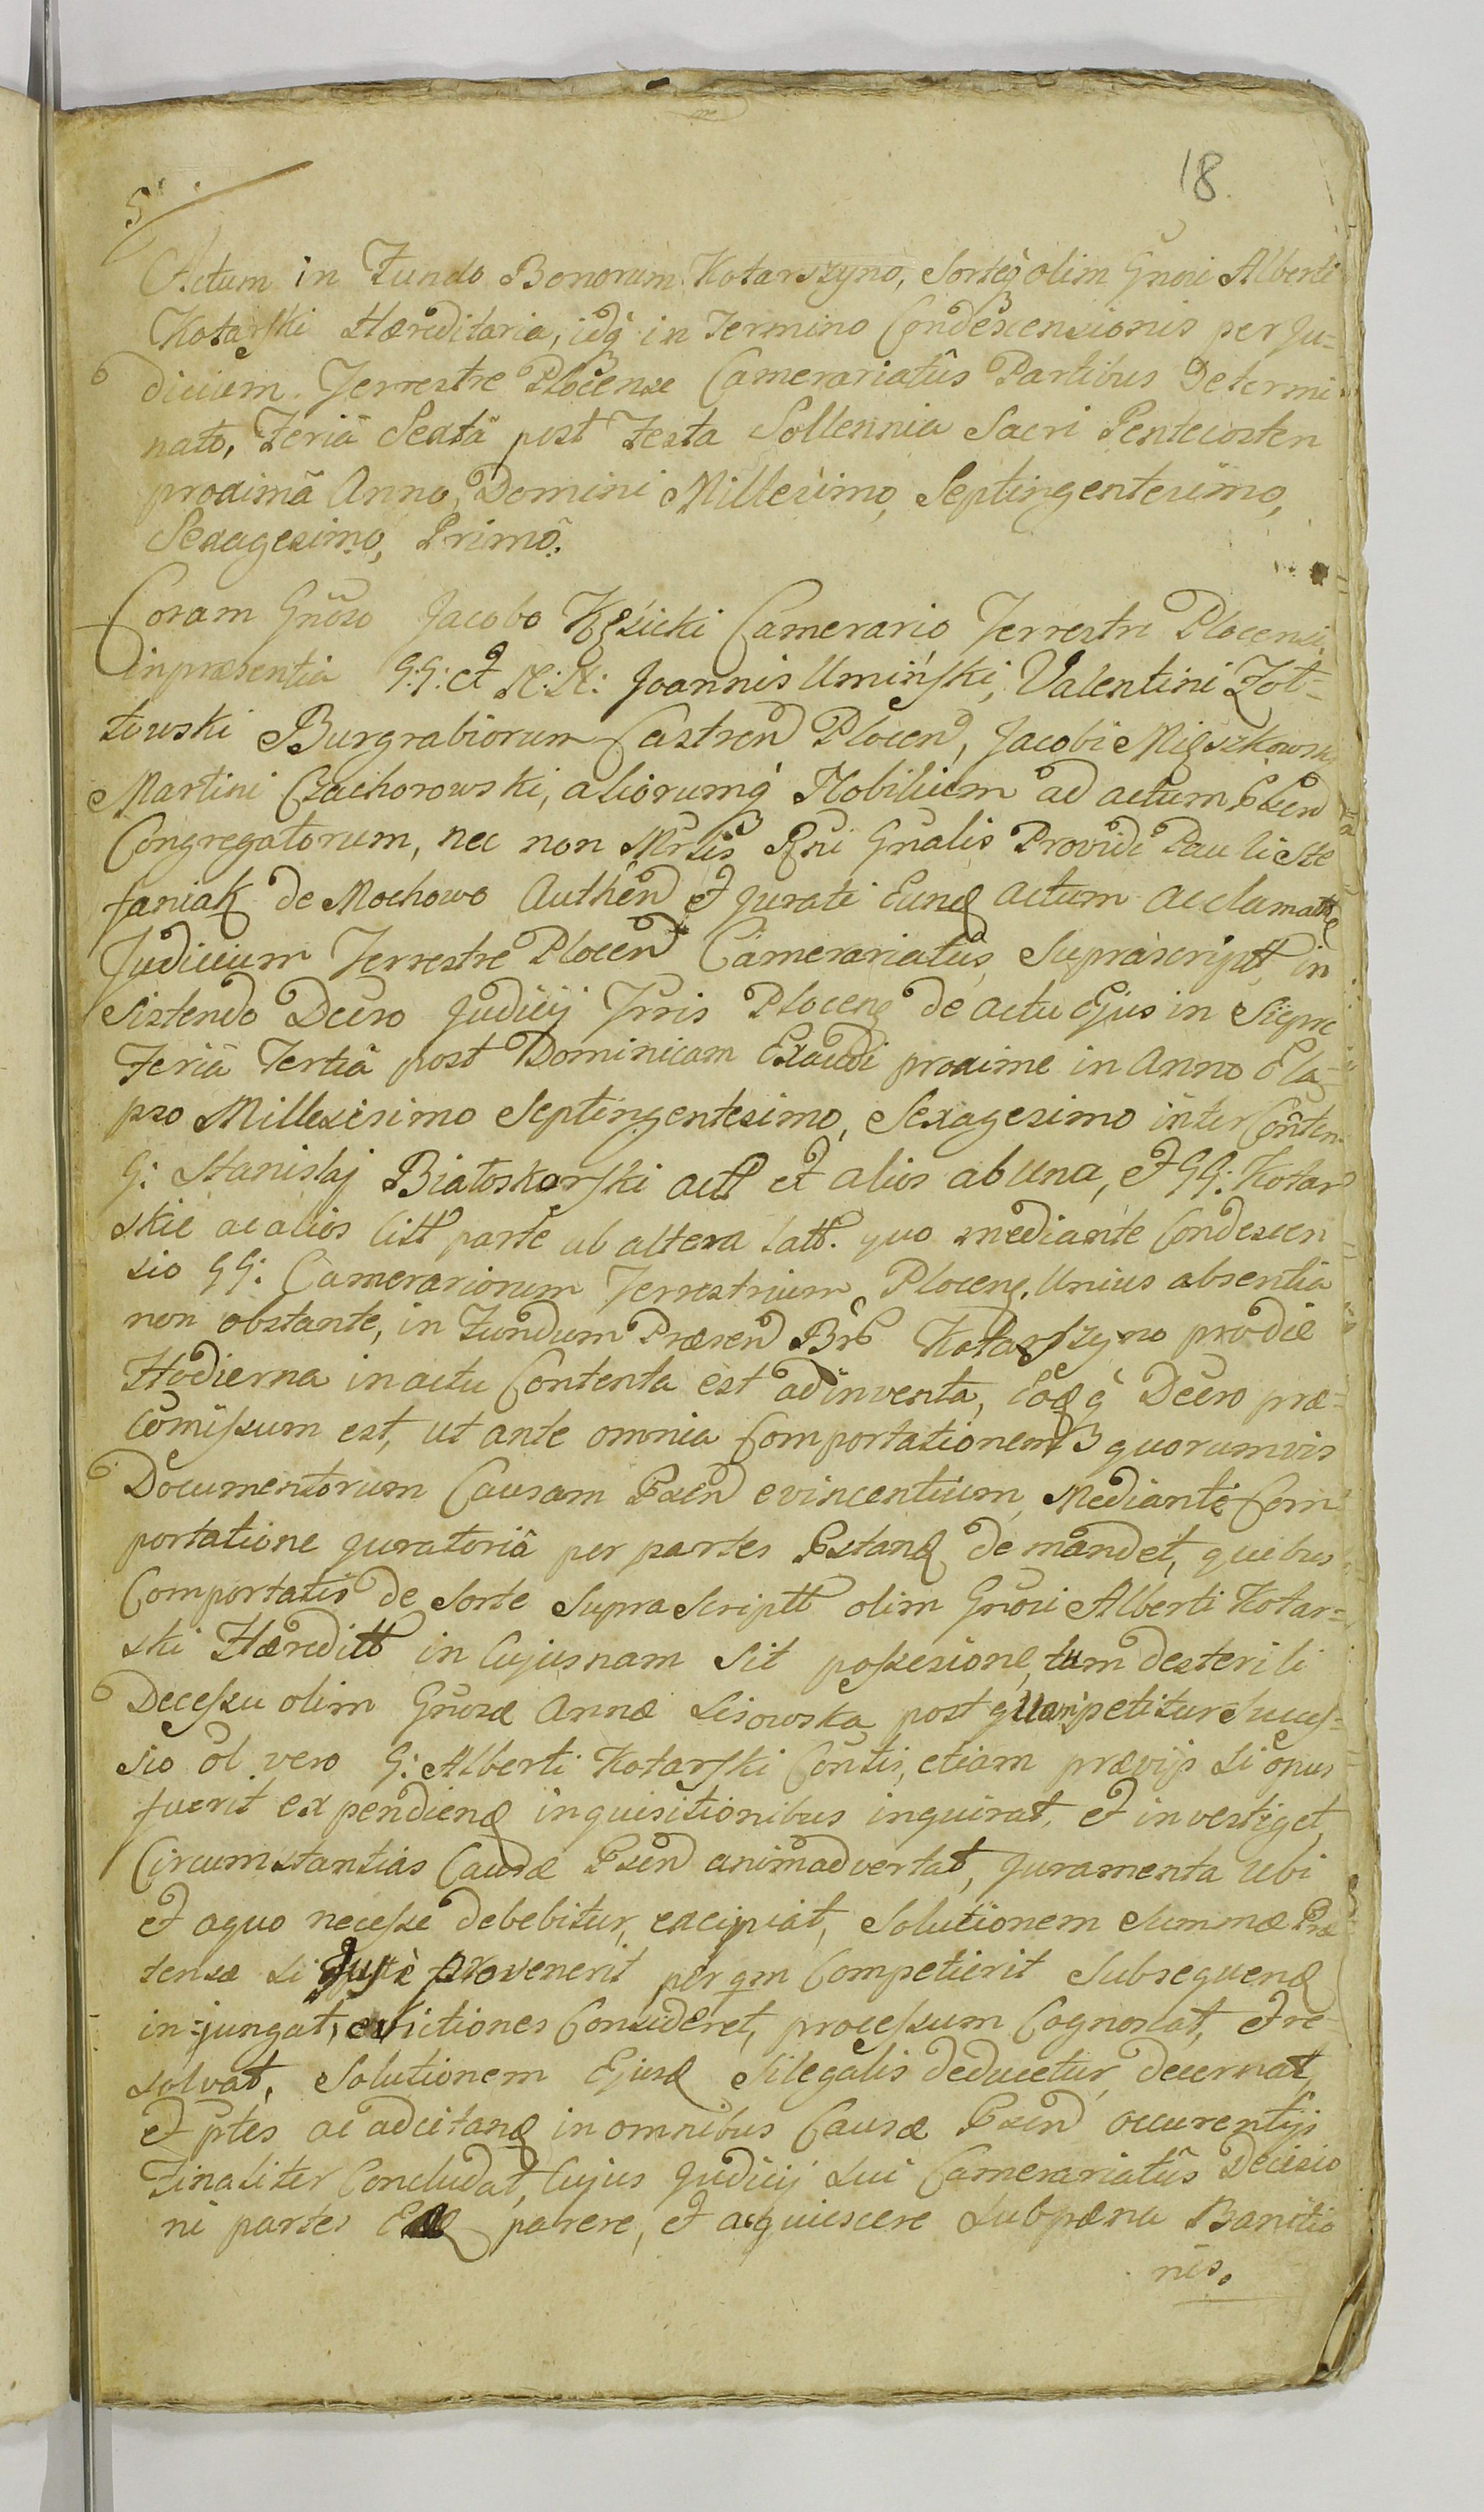 18.
5
Actum in Fundo Bonorum Kotarszyno, Sorteq́ olim Gnosi Alberti
Kotarski Hæreditaria, idq́ in Termino Condescensionis per Ju=
dicium Terrestre Plocense Camerariatûs Partibus Determi
nato, Feriâ Sextâ post Festa Sollennia Sacri Pentecosten
proximâ Anno, Domini Millesimo, Septingentesimo,
Sexagesimo, Primô.
Coram Gnoso Jacobo Kęsicki Camerario Terrestri Plocensi,
inpræsentia G:G: et N:N: Joannis Umiński, Valentini Zoł=
towski Burgrabiorum Castren Plocen, Jacobi Mięszkowski
Martini Czachorowski, aliorumq́ Nobilium ad actum Psen
Congregatorum, nec non Mrlis Rni Gnalis Providi Pauli Ste
faniak de Mochowo Authen et Jurati Eunq actum acclamatte
Judicium Terrestre Plocen Camerariatûs, Suprascriptt in
Sistendo Decro Judicij Trris Plocenq de actu Ejus in Siepre
Feriâ Tertiâ post Dominicam Exaudi proxime in Anno Ela=
pso Millesisimo Septingentesimo, Sexagesimo inter Conten
G: Stanislaj Białoskorski actt et alios ab una, et GG: Kotar
skie ac alios citt parte ab altera latt. quo mediante Condescen
sio GG: Camerariorum Terrestrium, Plocenq. Unius absentia
non obstante, in Fundum Præsen Brb Kotarszyno prodie
Hodierna in actu Contenta est adinventa, Eoq q́ Decro præ=
comissum est, ut ante omnia Comportationem quorumvis
Documentorum Causam Psen evincentium, Mediante Com
portatione juratoriâ per partes Pstanq demandet, quibus
Comportatis de Sorte Supra Scriptt olim Gnosi Alberti Kotar=
ski Hæreditt in Cujusnam Sit possesione, tum de sterili
Decessu olim Gnosæ Annæ Lisowska post quam petitur Succes=
sio ol vero G: Alberti Kotarski Contis, etiam prævijs si opus
fuerit expedienq inquisitionibus inquirat, et investiget,
Circumstantias Causæ Psen animadvertat, Juramenta Ubi
et aquo necesse debebitur, excipiat, Solutionem Summæ Præ
tensæ si Juste provenerit per qm Competierit Subsequenq
in=jungat, evictiones Consideret, processum Cognoscat, et re
solvat, Solutionem Ejusq Silegalis deducetur, decernat,
et ptes ac adcitanq in omnibus Causæ Psen occurentijs
Finaliter Concludat, Cujus Judicij Sui Camerariatûs Decisio
ni partes parere, et acquiescere Subpæna Banitio
nis.